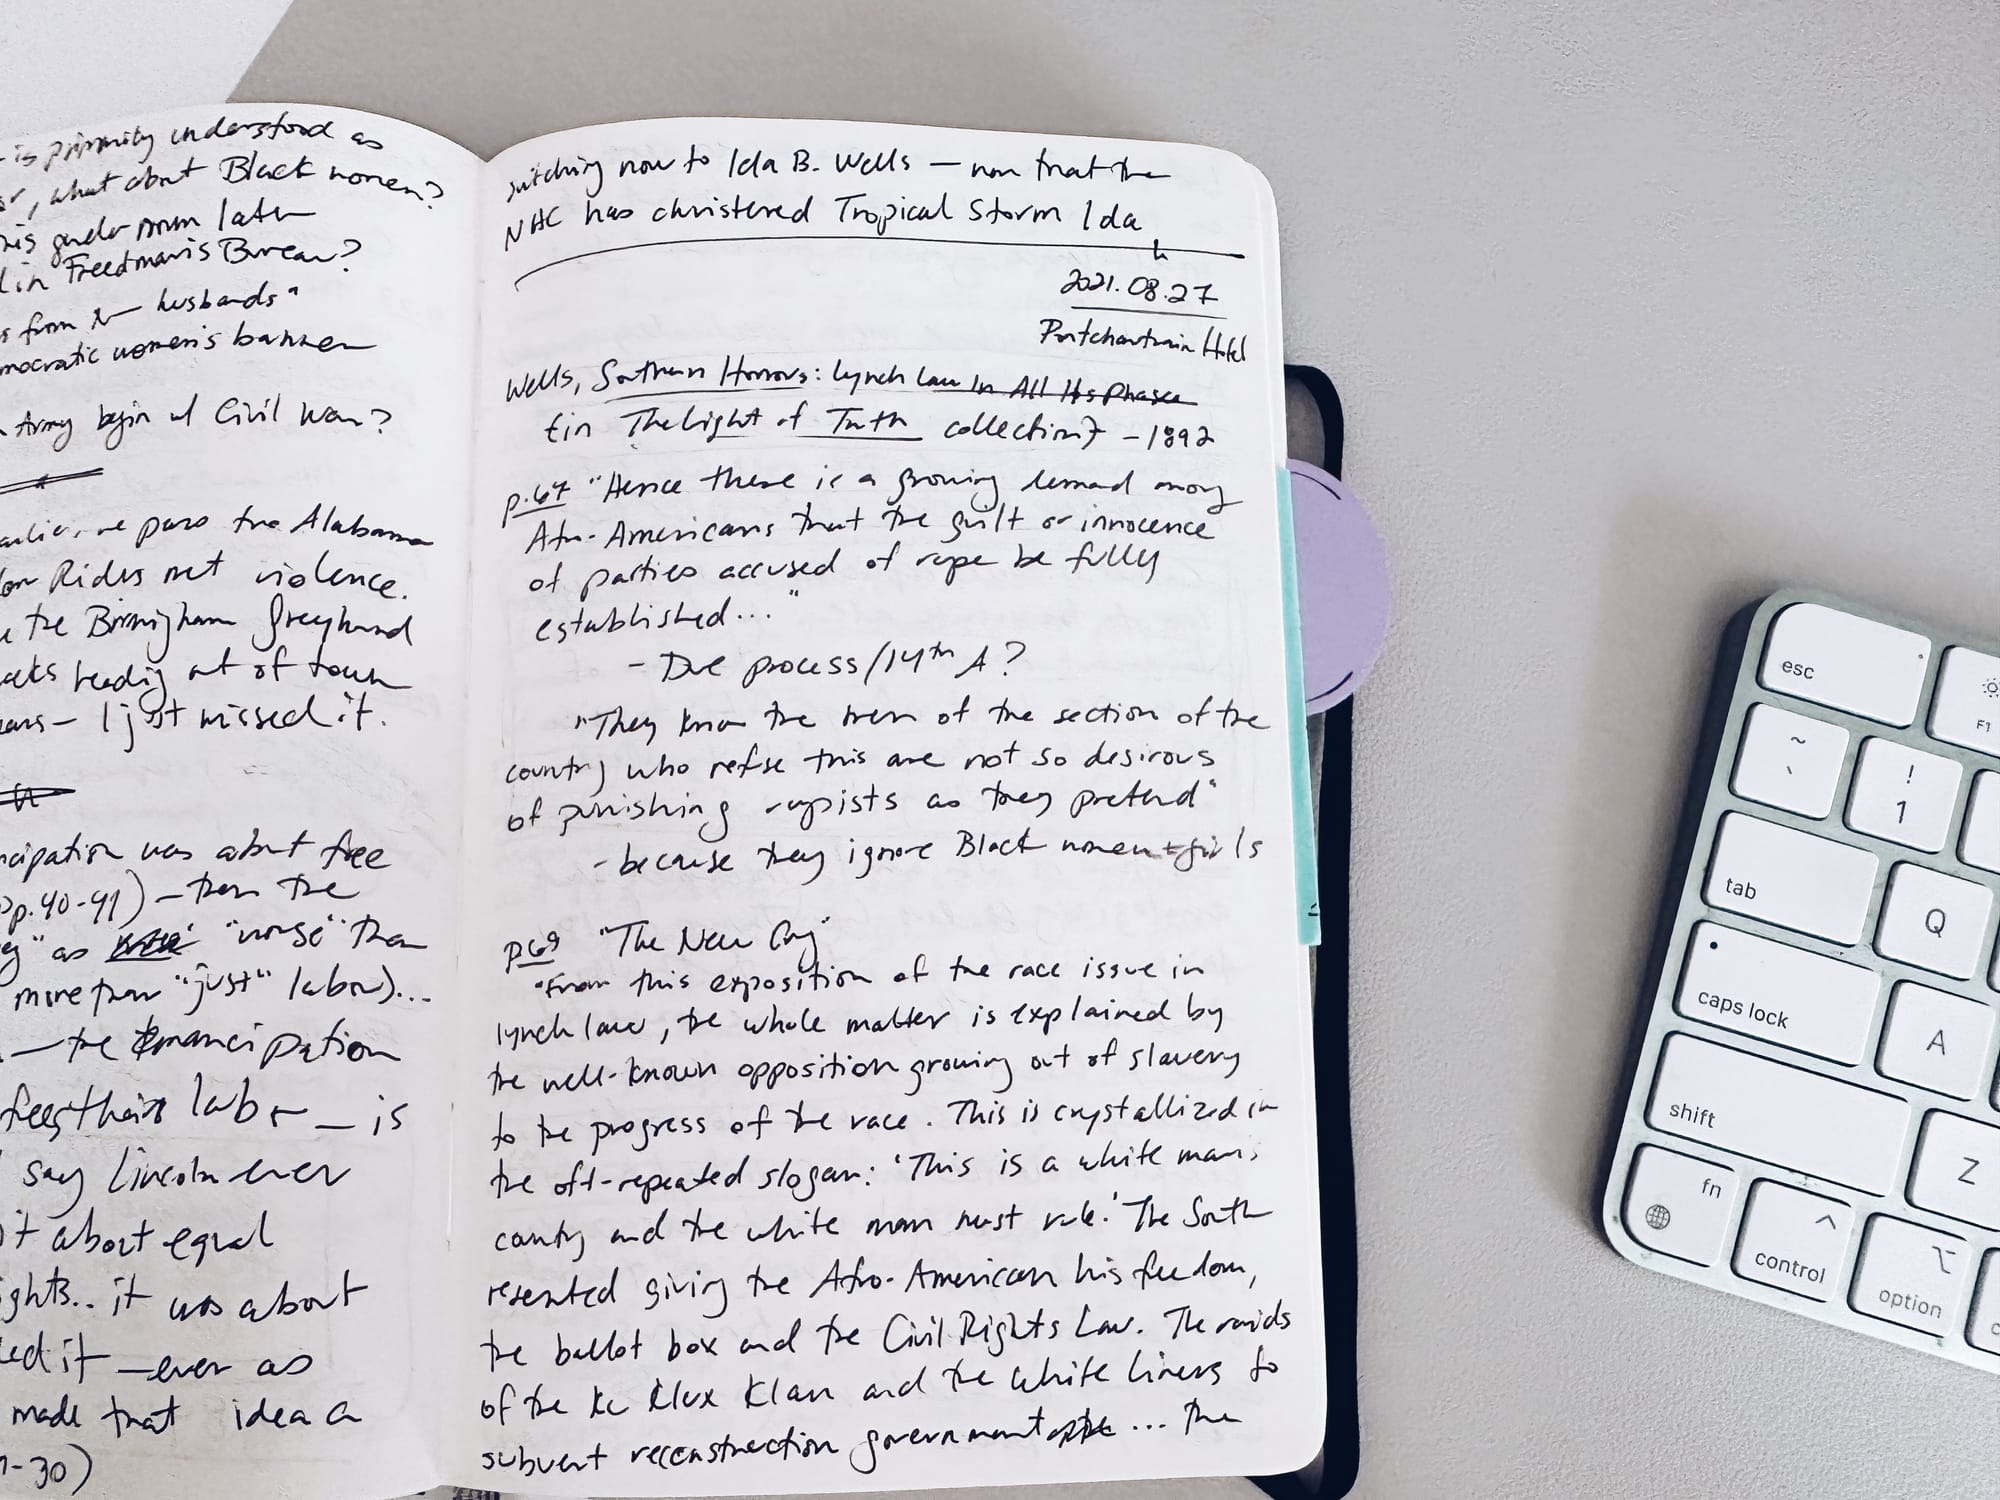 is primarily understood as
, what about Black women?
this gender norm later
in Freedman's Bureau?
from husbands"
democratic women's banner
Army begin w/ Civil War?
we pass the Alabama
Rides met violence.
the Birmingham Greyhound
leading out of town
I just missed it.
was about free
pp. 40-41) — then the
" as "worse" than
more than "just" labor)...
— the Emancipation
labor — is
say Lincoln ever
it about equal
rights.. it was about
it — ever as
made that idea a
-30)
switching now to Ida B. Wells — now that the
NHC has christened Tropical Storm Ida
2021.08.27
Pontchartrain Hotel
Wells, Southern Horrors: Lynch Law In All Its Phases
[in The Light of Truth collection] - 1892
p.67 "Hence there is a growing demand among
Afro-Americans that the guilt or innocence
of parties accused of rape be fully
established..."
- Due process/14th A?
"They know the men of the section of the
country who refuse this are not so desirous
of punishing rapists as they pretend"
- because they ignore Black women + girls
p.69 "The New Cry"
"From this exposition of the race issue in
lynch law, the whole matter is explained by
the well-known opposition growing out of slavery
to the progress of the race. This is crystallized in
the oft-repeated slogan: 'This is a white man's
country and the white man must rule.' The South
resented giving the Afro-American his freedom,
the ballot box and the Civil Rights Law. The raids
of the Ku Klux Klan and the White Liners to
subvert reconstruction government ... the
esc
F1
~
`
!
1
tab
Q
caps lock
A
shift
Z
fn
control
option